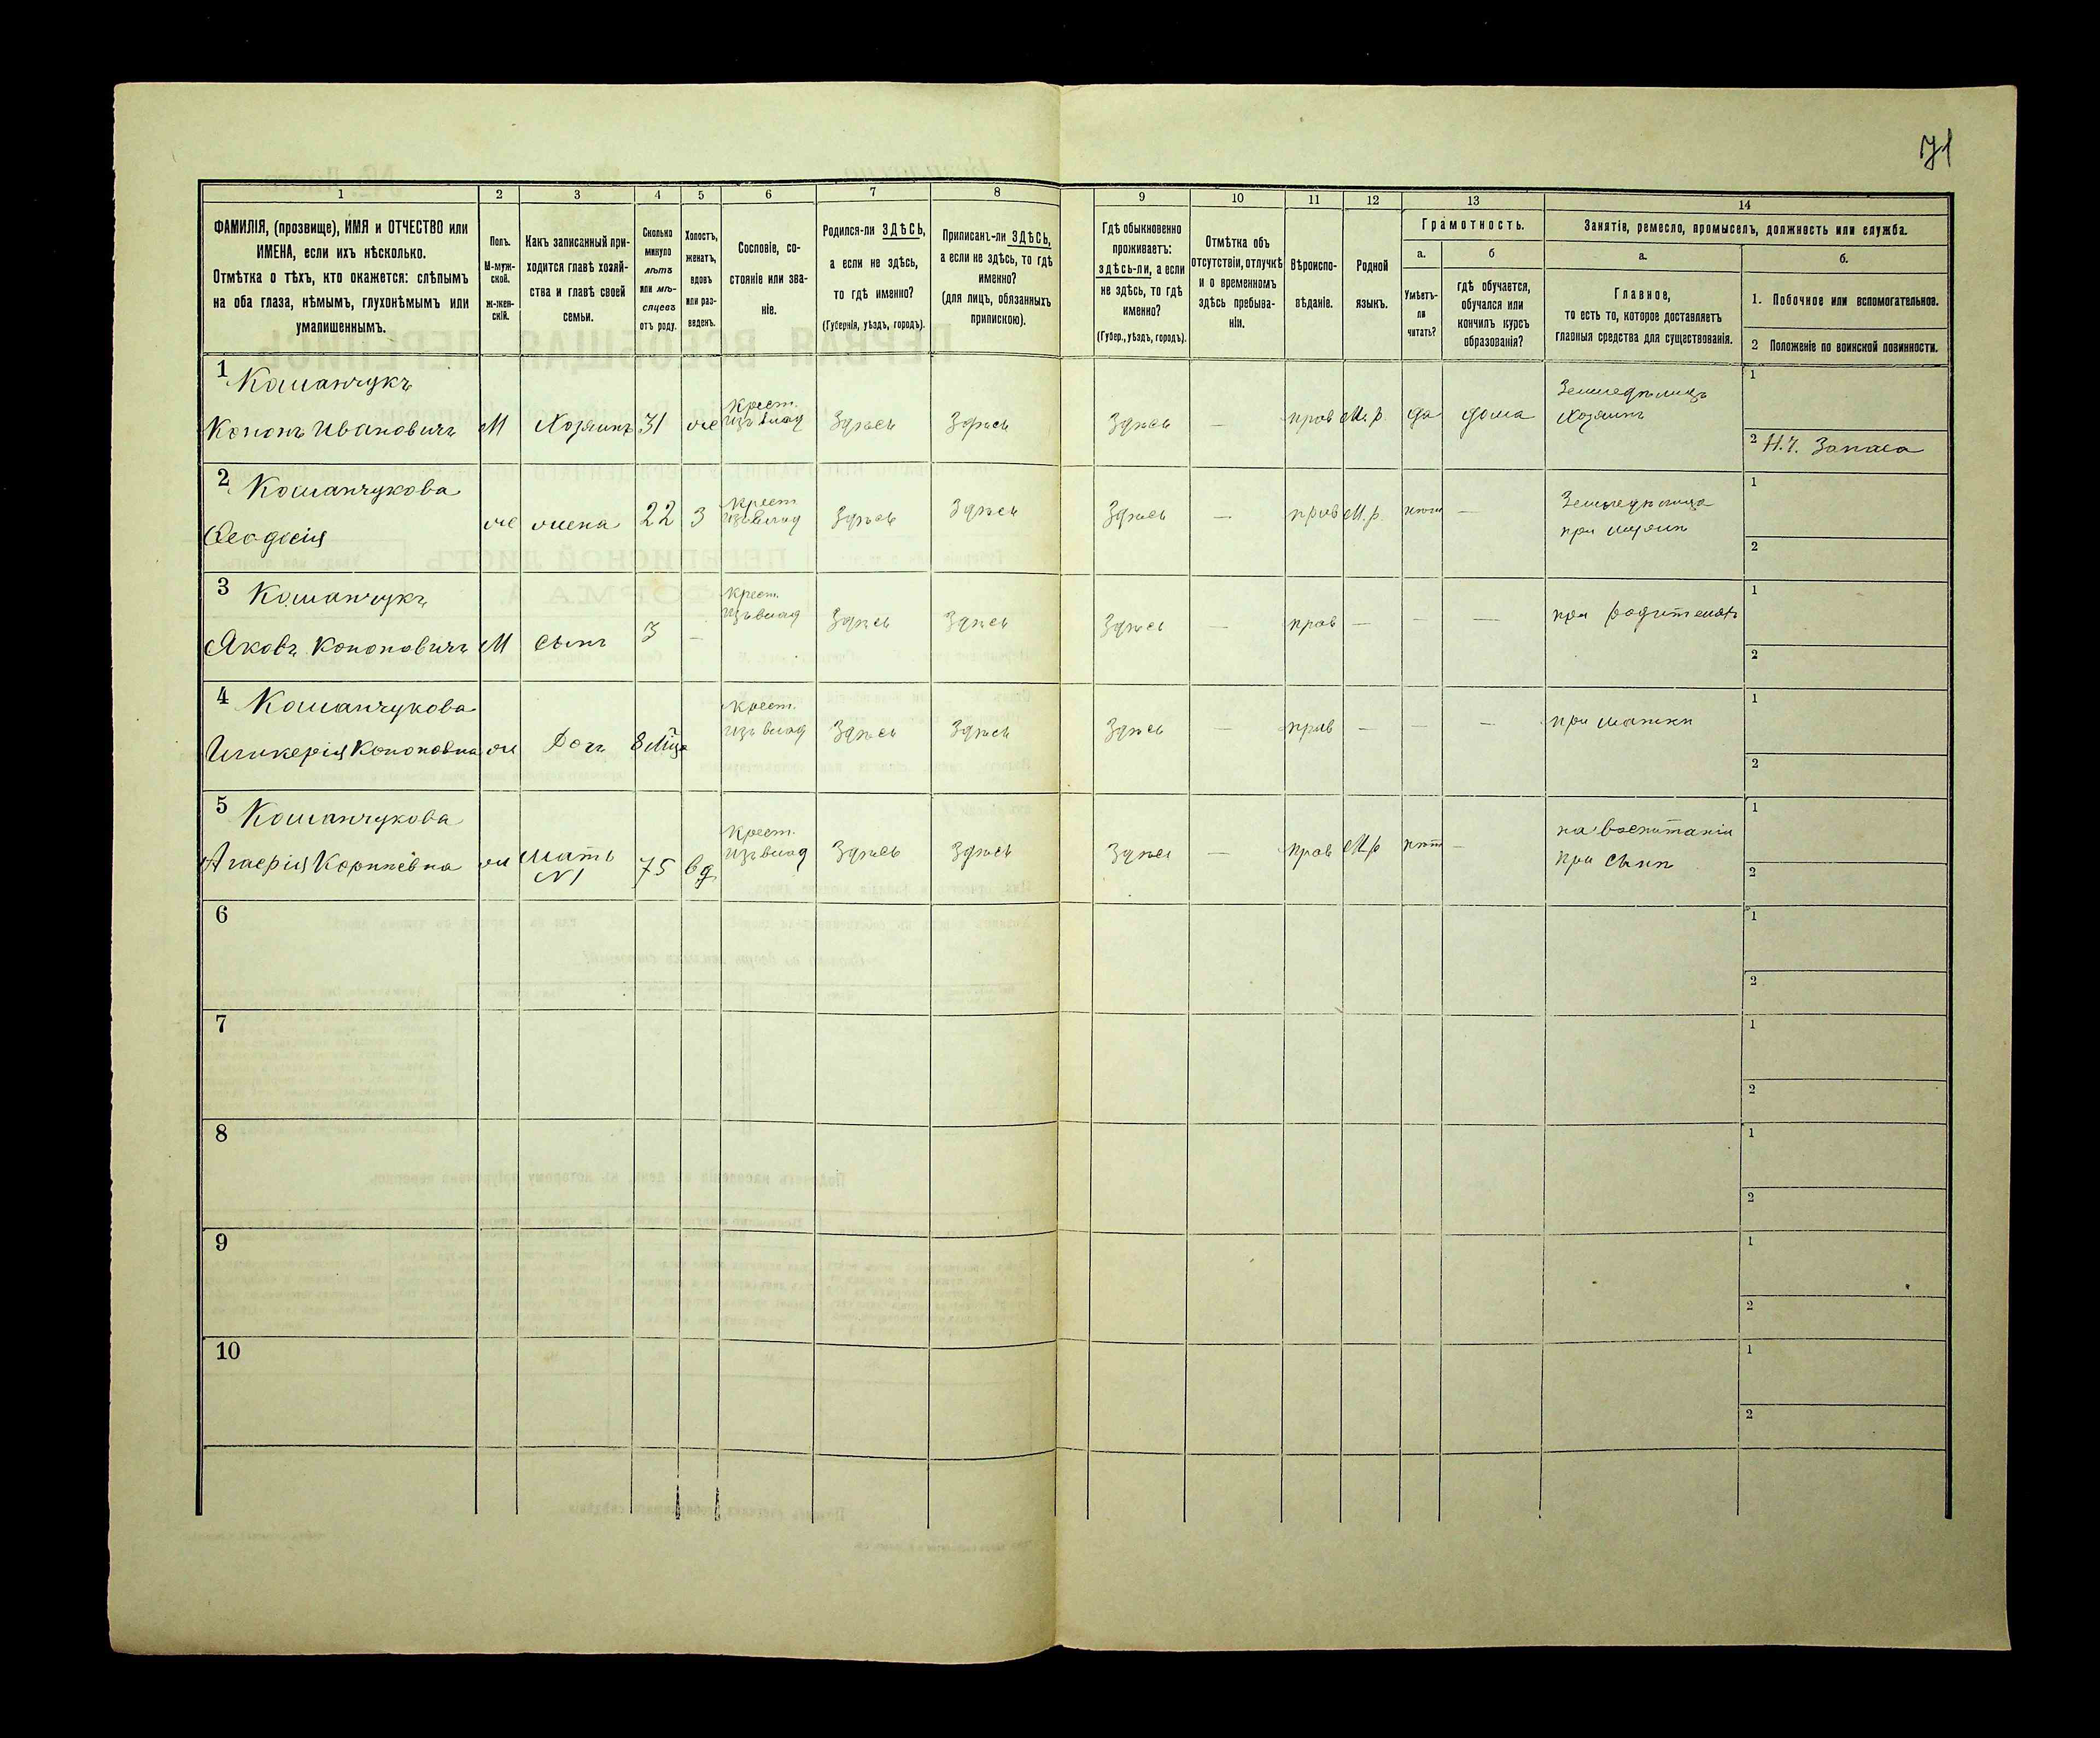 71
1 2 3 4 5 6 7 8 9 10 11 12 13 14
ФАМИЛІЯ, (прозвище), ИМЯ и ОТЧЕСТВО или
ИМЕНА, если ихъ нѣсколько.
Отмѣтка о тѣхъ, кто окажется: слѣпымъ
на оба глаза, нѣмымъ, глухонѣмымъ или
умалишеннымъ.
Полъ.
М-муж-
ской.
ж-жен-
скій.
Какъ записанный при-
ходится главѣ хозяй-
ства и главѣ своей
семьи.
Сколько
минуло
лѣтъ
или мѣ-
сяцевъ
отъ роду.
Холостъ,
женатъ,
вдовъ
или раз-
веденъ.
Сословіе, со-
стояніе или зва-
ніе.
Родился-ли ЗДѢСЬ,
а если не здѣсь,
то гдѣ именно?
(Губернія, уѣздъ, городъ).
Приписанъ-ли ЗДѢСЬ,
а если не здѣсь, то гдѣ
именно?
(для лицъ, обязанныхъ
припискою).
Гдѣ обыкновенно
проживаетъ:
здѣсь-ли, а если
не здѣсь, то гдѣ
именно?
(Губер., уѣздъ, городъ).
Отмѣтка объ
отсутствіи, отлучкѣ
и о временномъ
здѣсь пребыва-
ніи.
Вѣроиспо-
вѣданіе.
Родной
языкъ.
Грамотность.
а.
Умѣетъ-
ли
читать?
б
гдѣ обучается,
обучался или
кончилъ курсъ
образованія?
Занятія, ремесло, промыселъ, должность или служба.
а.
Главное,
то есть то, которое доставляетъ
главныя средства для существованія.
б.
1. Побочное или вспомогательное.
2 Положеніе по воинской повинности.
1 Команчукъ Крест. Земледѣлецъ 1
Кононъ Ивановичъ М Хозяинъ 31 же изъ влад Здѣсь Здѣсь Здѣсь — прав М. р. да дома Хозяинъ
2 Н. Ч. Запаса
2 Команчукова Крест Земледѣлица 1
Феодосія ж жена 22 З изъ влад Здѣсь Здѣсь Здѣсь — прав М. р. нѣт — при мужѣ
2
3 Команчукъ Крест. 1
Яковъ Кононовичъ М сынъ 3 — изъ влад Здѣсь Здѣсь Здѣсь — прав — — — при родителях
2
4 Команчукова Крест. 1
Кононовна ж Дочь 8 Мца изъ влад Здѣсь Здѣсь Здѣсь — прав — — — при матки
2
5 Команчукова Крест. на воспитаніи 1
ж мать 75 вд. изъ влад Здѣсь Здѣсь Здѣсь — прав М. р нѣт — при сынѣ
N1
2
6 1
2
7 1
2
8 1
2
9 1
2
10 1
2